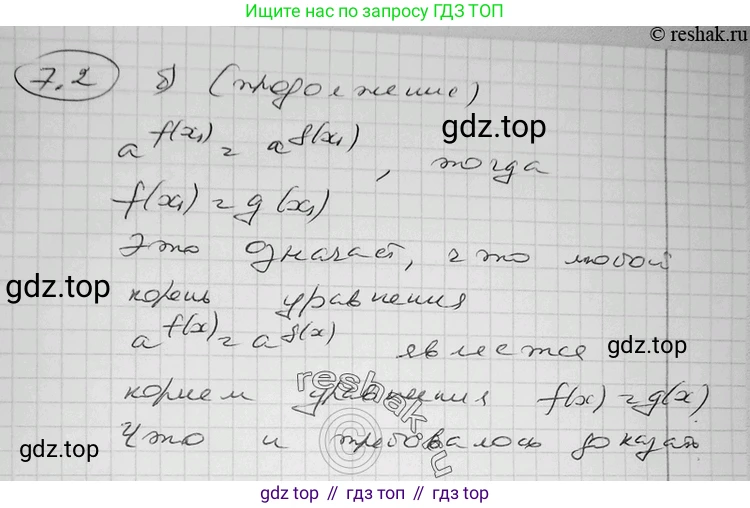 Ищите нас по запросу ГДЗ ТОП
© reshak.ru
7.2 б) (продолжение)
gdz.top
a^f(x₁) = a^g(x₁), тогда
f(x₁) = g(x₁)
Это означает, что любой
gdz.top
корень уравнения
a^f(x) = a^g(x) является
gdz.top
корнем уравнения f(x) = g(x)
reshak.ru
©
Что и требовалось доказать
gdz.top
gdz.top
gdz top // гдз топ // gdz.top